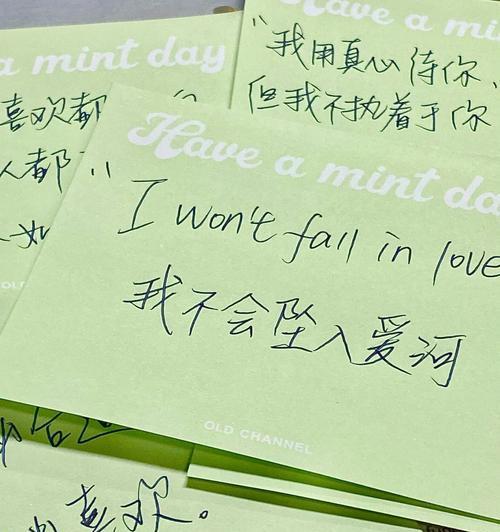 a mint day
喜欢都
人都
如
OLD
Have a mi
"我用真心待你、
但我不执着于你
Have a mint da
"I won't fall in love
我不会坠入爱河
OLD CHANNEL
喜欢。